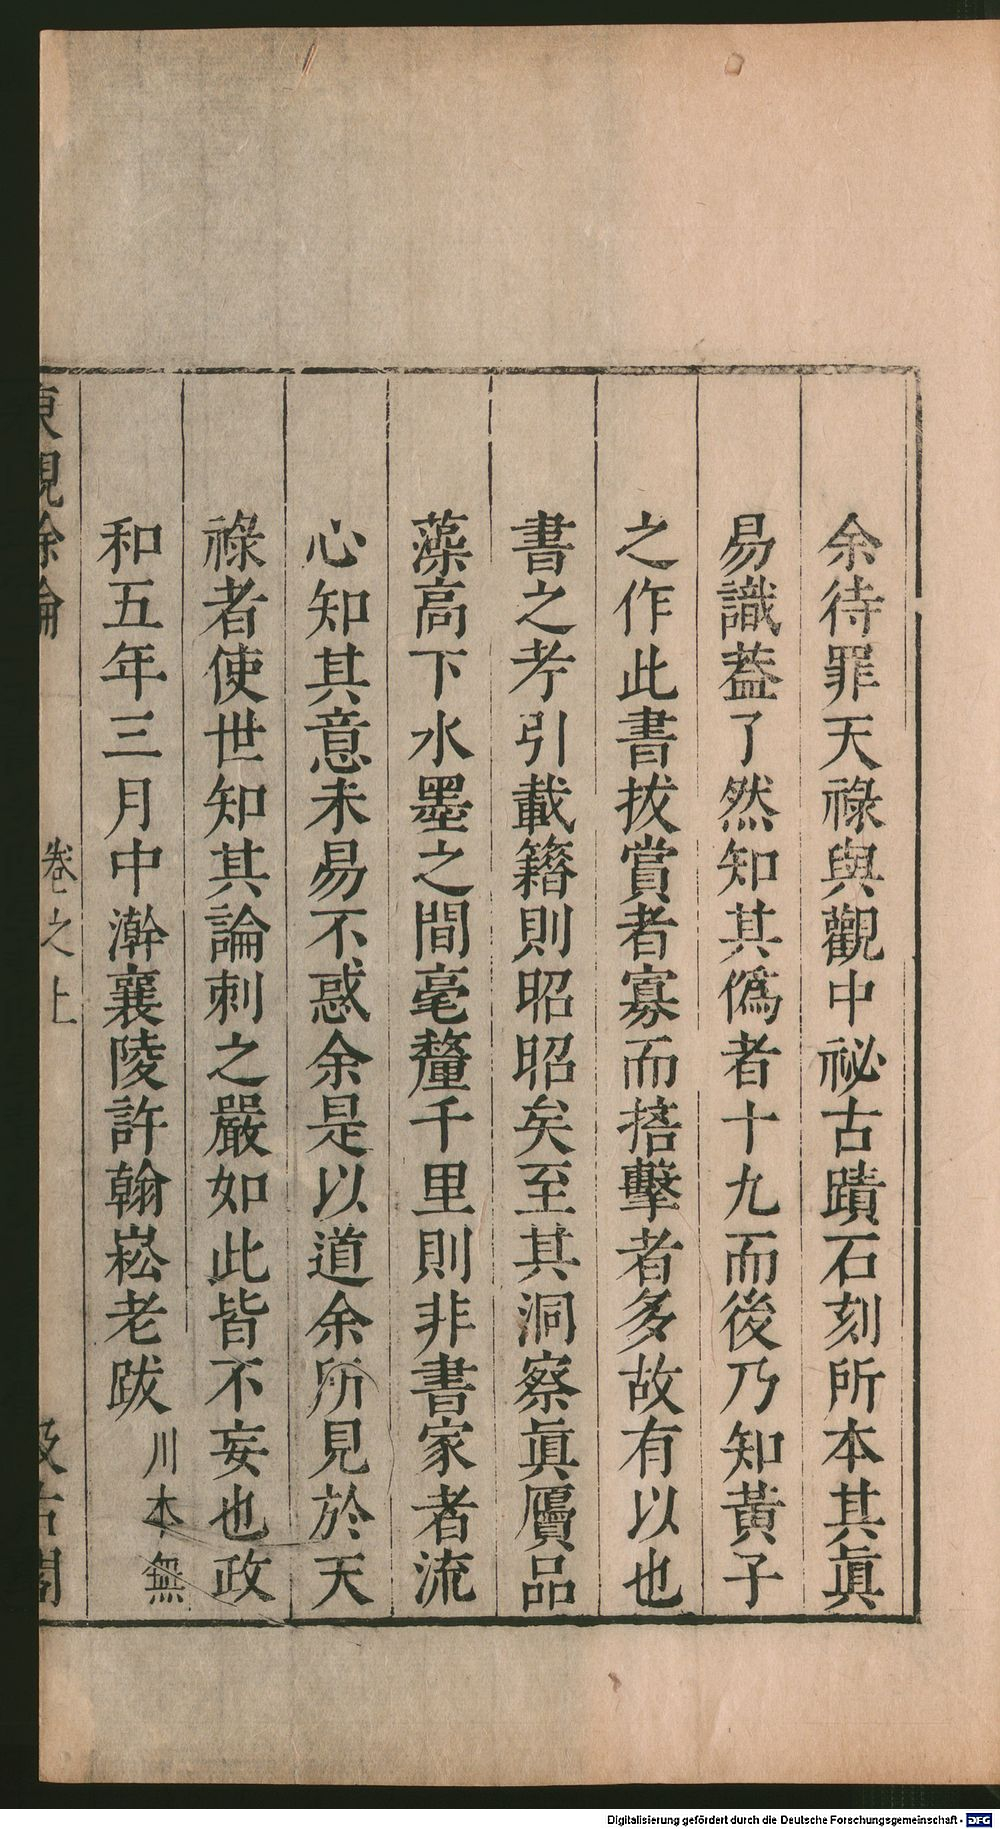 余待罪天祿與觀中祕古蹟石刻所本其眞
易識葢了然知其僞者十九而後乃知黃子
之作此書拔賞者寡而掊擊者多故有以也
書之考引載籍則昭昭矣至其洞察眞贗品
藻高下水墨之間毫釐千里則非書家者流
心知其意未易不惑余是以道余所見於天
祿者使世知其論刺之嚴如此皆不妄也政
和五年三月中澣襄陵許翰崧老跋
川本無
東觀餘論
卷之上
汲古閣
Digitalisierung gefördert durch die Deutsche Forschungsgemeinschaft - DFG